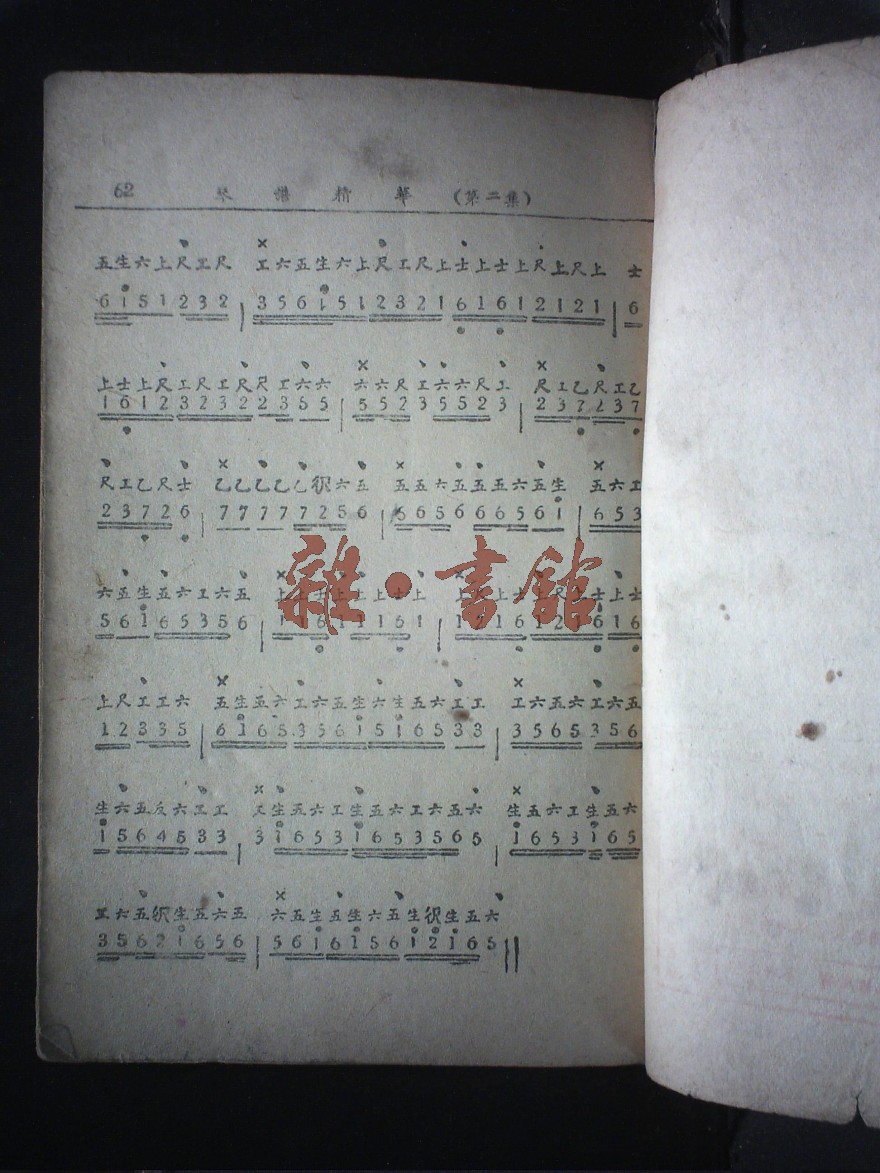 62 琴譜精華 (第二集)
五生六上尺工尺 工六五生六上尺工尺上士上士上尺上尺上 士
6 i 5 1 2 3 2 | 3 5 6 i 5 1 2 3 2 1 6 1 6 1 2 1 2 1 | 6
上士上尺工尺工尺尺工六六 六六尺工六六尺工 尺工乙尺工乙
1 6 1 2 3 2 3 2 2 3 5 5 | 5 5 2 3 5 5 2 3 | 2 3 7 2 3 7
尺工乙尺士 乙乙乙乙乙伬六五 五五六五五六五生 五六工
2 3 7 2 6 | 7 7 7 7 7 2 5 6 | 6 6 5 6 6 6 5 6 i | 6 5 3
六五生五六工六五
5 6 i 6 5 3 5 6 | 1 1 6 1 1 1 6 1 | 1 2 1 6 1 2 1 6 1 6
上尺工工六 五生五六工六五生六生五六工工 工六五六工六五
1 2 3 3 5 | 6 i 6 5 3 5 6 i 5 i 6 5 3 3 | 3 5 6 5 3 5 6
生六五反六工工 工生五六工生五六工六五六 生五六工生五六
i 5 6 4 5 3 3 | 3 i 6 5 3 i 6 5 3 5 6 5 | i 6 5 3 i 6 5
工六五伬生五六五 六五生五生六五生伬生五六
3 5 6 2 i 6 5 6 | 5 6 i 6 i 5 6 i 2 i 6 5 ||
雜·書館